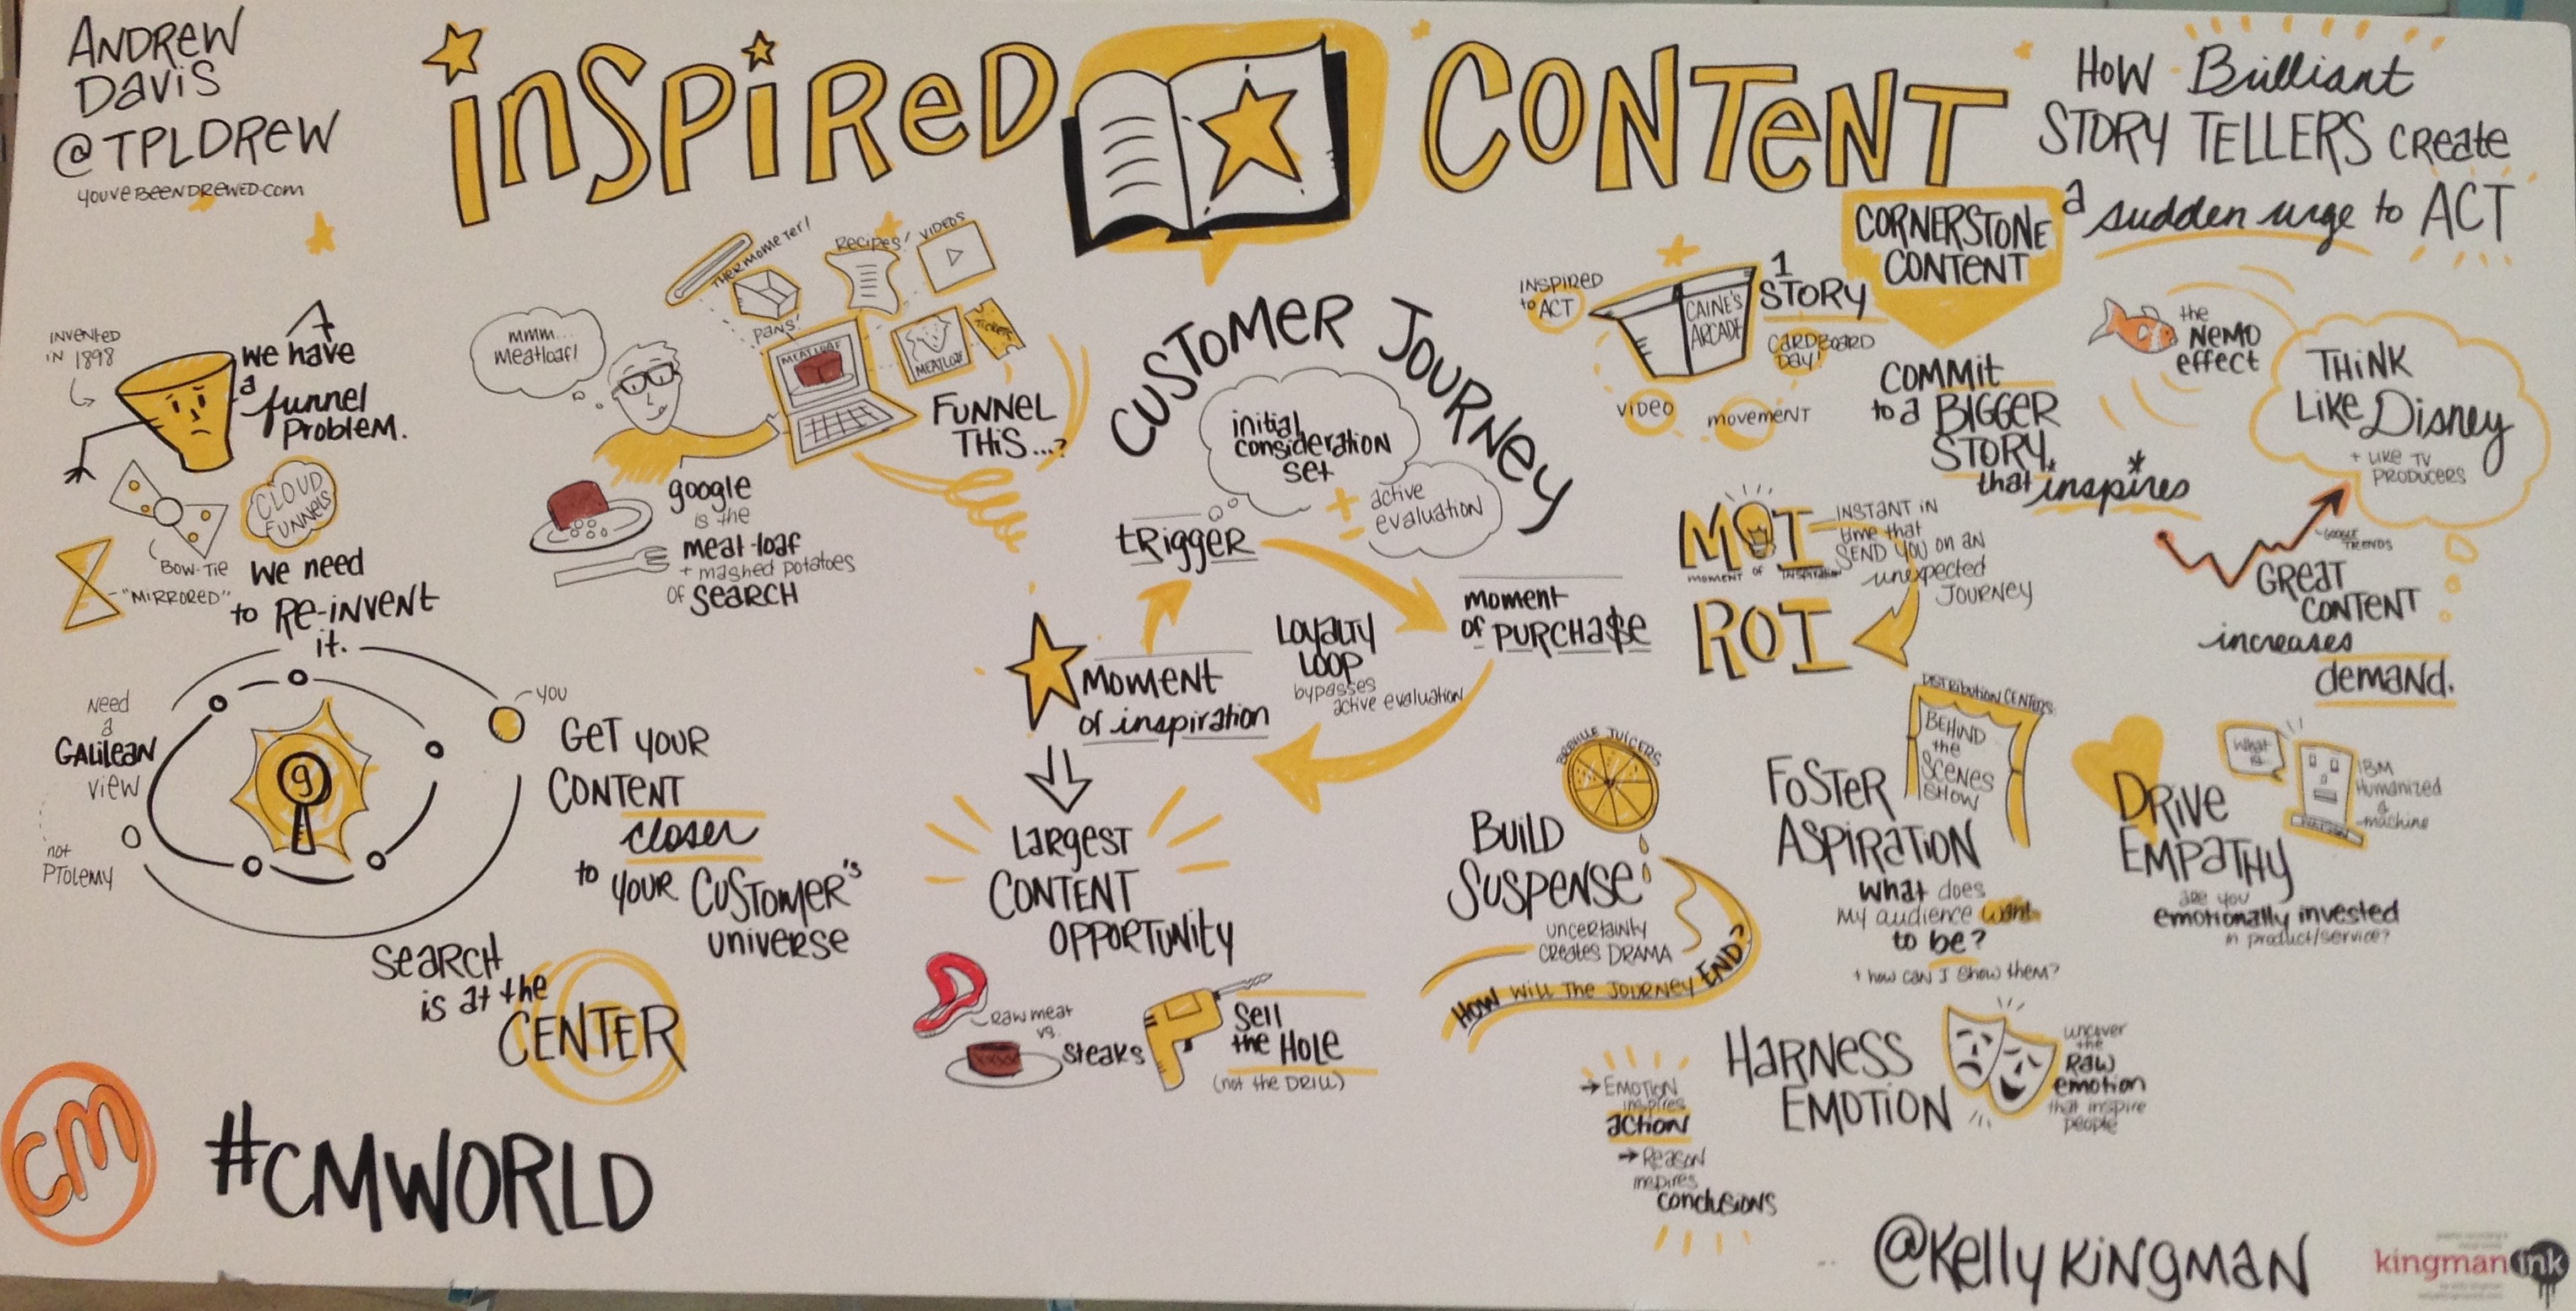 ANDREW
DAVIS
@TPLDREW
YOUVEBEENDREWED.COM
INSPIRED
CONTENT
HOW Brilliant
STORY TELLERS create
a sudden urge to ACT
INVENTED
IN 1898
we have
a funnel
PROBLEM.
CLOUD
FUNNELS
BOW-TIE
"MIRRORED"
we need
to Re-iNVENT
it.
mmm...
meatloaf!
THERMOMETER!
PANS!
Recipes!
VIDEOS
MEATLOAF
MEATLOAF
TICKETS
FUNNEL
THIS...?
google
is the
meat-loaf
+ mashed potatoes
of SEARCH
Need
a
GALILEAN
VIEW
not
PTOLEMY
g
YOU
GET YOUR
CONTENT
closer
to YOUR CUSTOMER'S
UNIVERSE
SEARCH
is at the
CENTER
CM
#CMWORLD
CUSTOMER JOURNEY
initial
consideration
set
+
active
evaluation
TRIGGER
moment
of PURCHA$E
LOYALTY
LOOP
bypasses
active evaluation
MOMENT
of inspiration
LARGEST
CONTENT
OPPORTUNITY
RAW MEAT
VS.
STEAKS
Sell
the HOLE
(NOT the DRILL)
CORNERSTONE
CONTENT
INSPIRED
to ACT
CAINE'S
ARCADE
1
STORY
CARDBOARD
DAY!
VIDEO
MOVEMENT
COMMIT
to a BIGGER
STORY,
that inspires
the
NEMO
effect
THINK
LIKE Disney
+ LIKE TV
PRODUCERS
GOOGLE
TRENDS
GREAT
CONTENT
increases
demand.
MOI
MOMENT OF INSPIRATION
INSTANT IN
time that
SEND YOU ON AN
unexpected
JOURNEY
ROI
BREVILLE JUICERS
BUILD
SUSPENSE
UNCERTAINTY
CREATES DRAMA
HOW WILL THE JOURNEY END?
DISTRIBUTION CENTERS
BEHIND
the
SCENES
SHOW
FOSTER
ASPIRATION
What does
my audience want
to be?
+ how can I show them?
DRIVE
EMPATHY
are you
emotionally invested
in product/service?
What
is
IBM
Humanized
a
machine
HARNESS
EMOTION
uncover
the
RAW
emotion
that inspire
people
→ EMOTION
inspires
action
→ REASON
inspires
conclusions
@KellyKingman
kingman ink